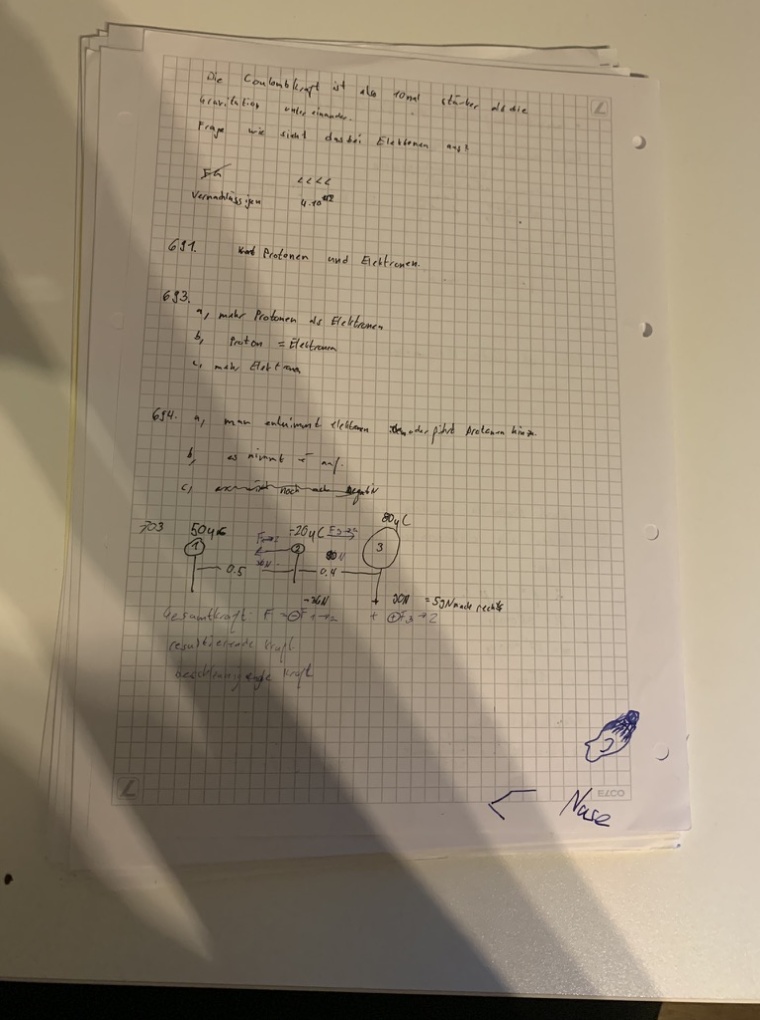 Die Coulombkraft ist also 10mal stärker als die
Gravitation unter einander.
Frage wie sieht das bei Elektronen aus?
<<<<
Vernachlässigen 4.10
691. Protonen und Elektronen.
693.
a, mehr Protonen als Elektronen
b, Proton = Elektronen
c, mehr Elektronen
694. a, man entnimmt elektronen oder führt Protonen hinzu.
b, es nimmt e⁻ auf.
c, noch negativ
80µC
703 50µC -20µC F3→2
1 2 3
0.5 0.4
-36N + = 59N nach rechts
Gesamtkraft: F = ⊖F1→2 + ⊕F3→2
resultierende Kraft
beschleunigende Kraft
Nase
ELCO